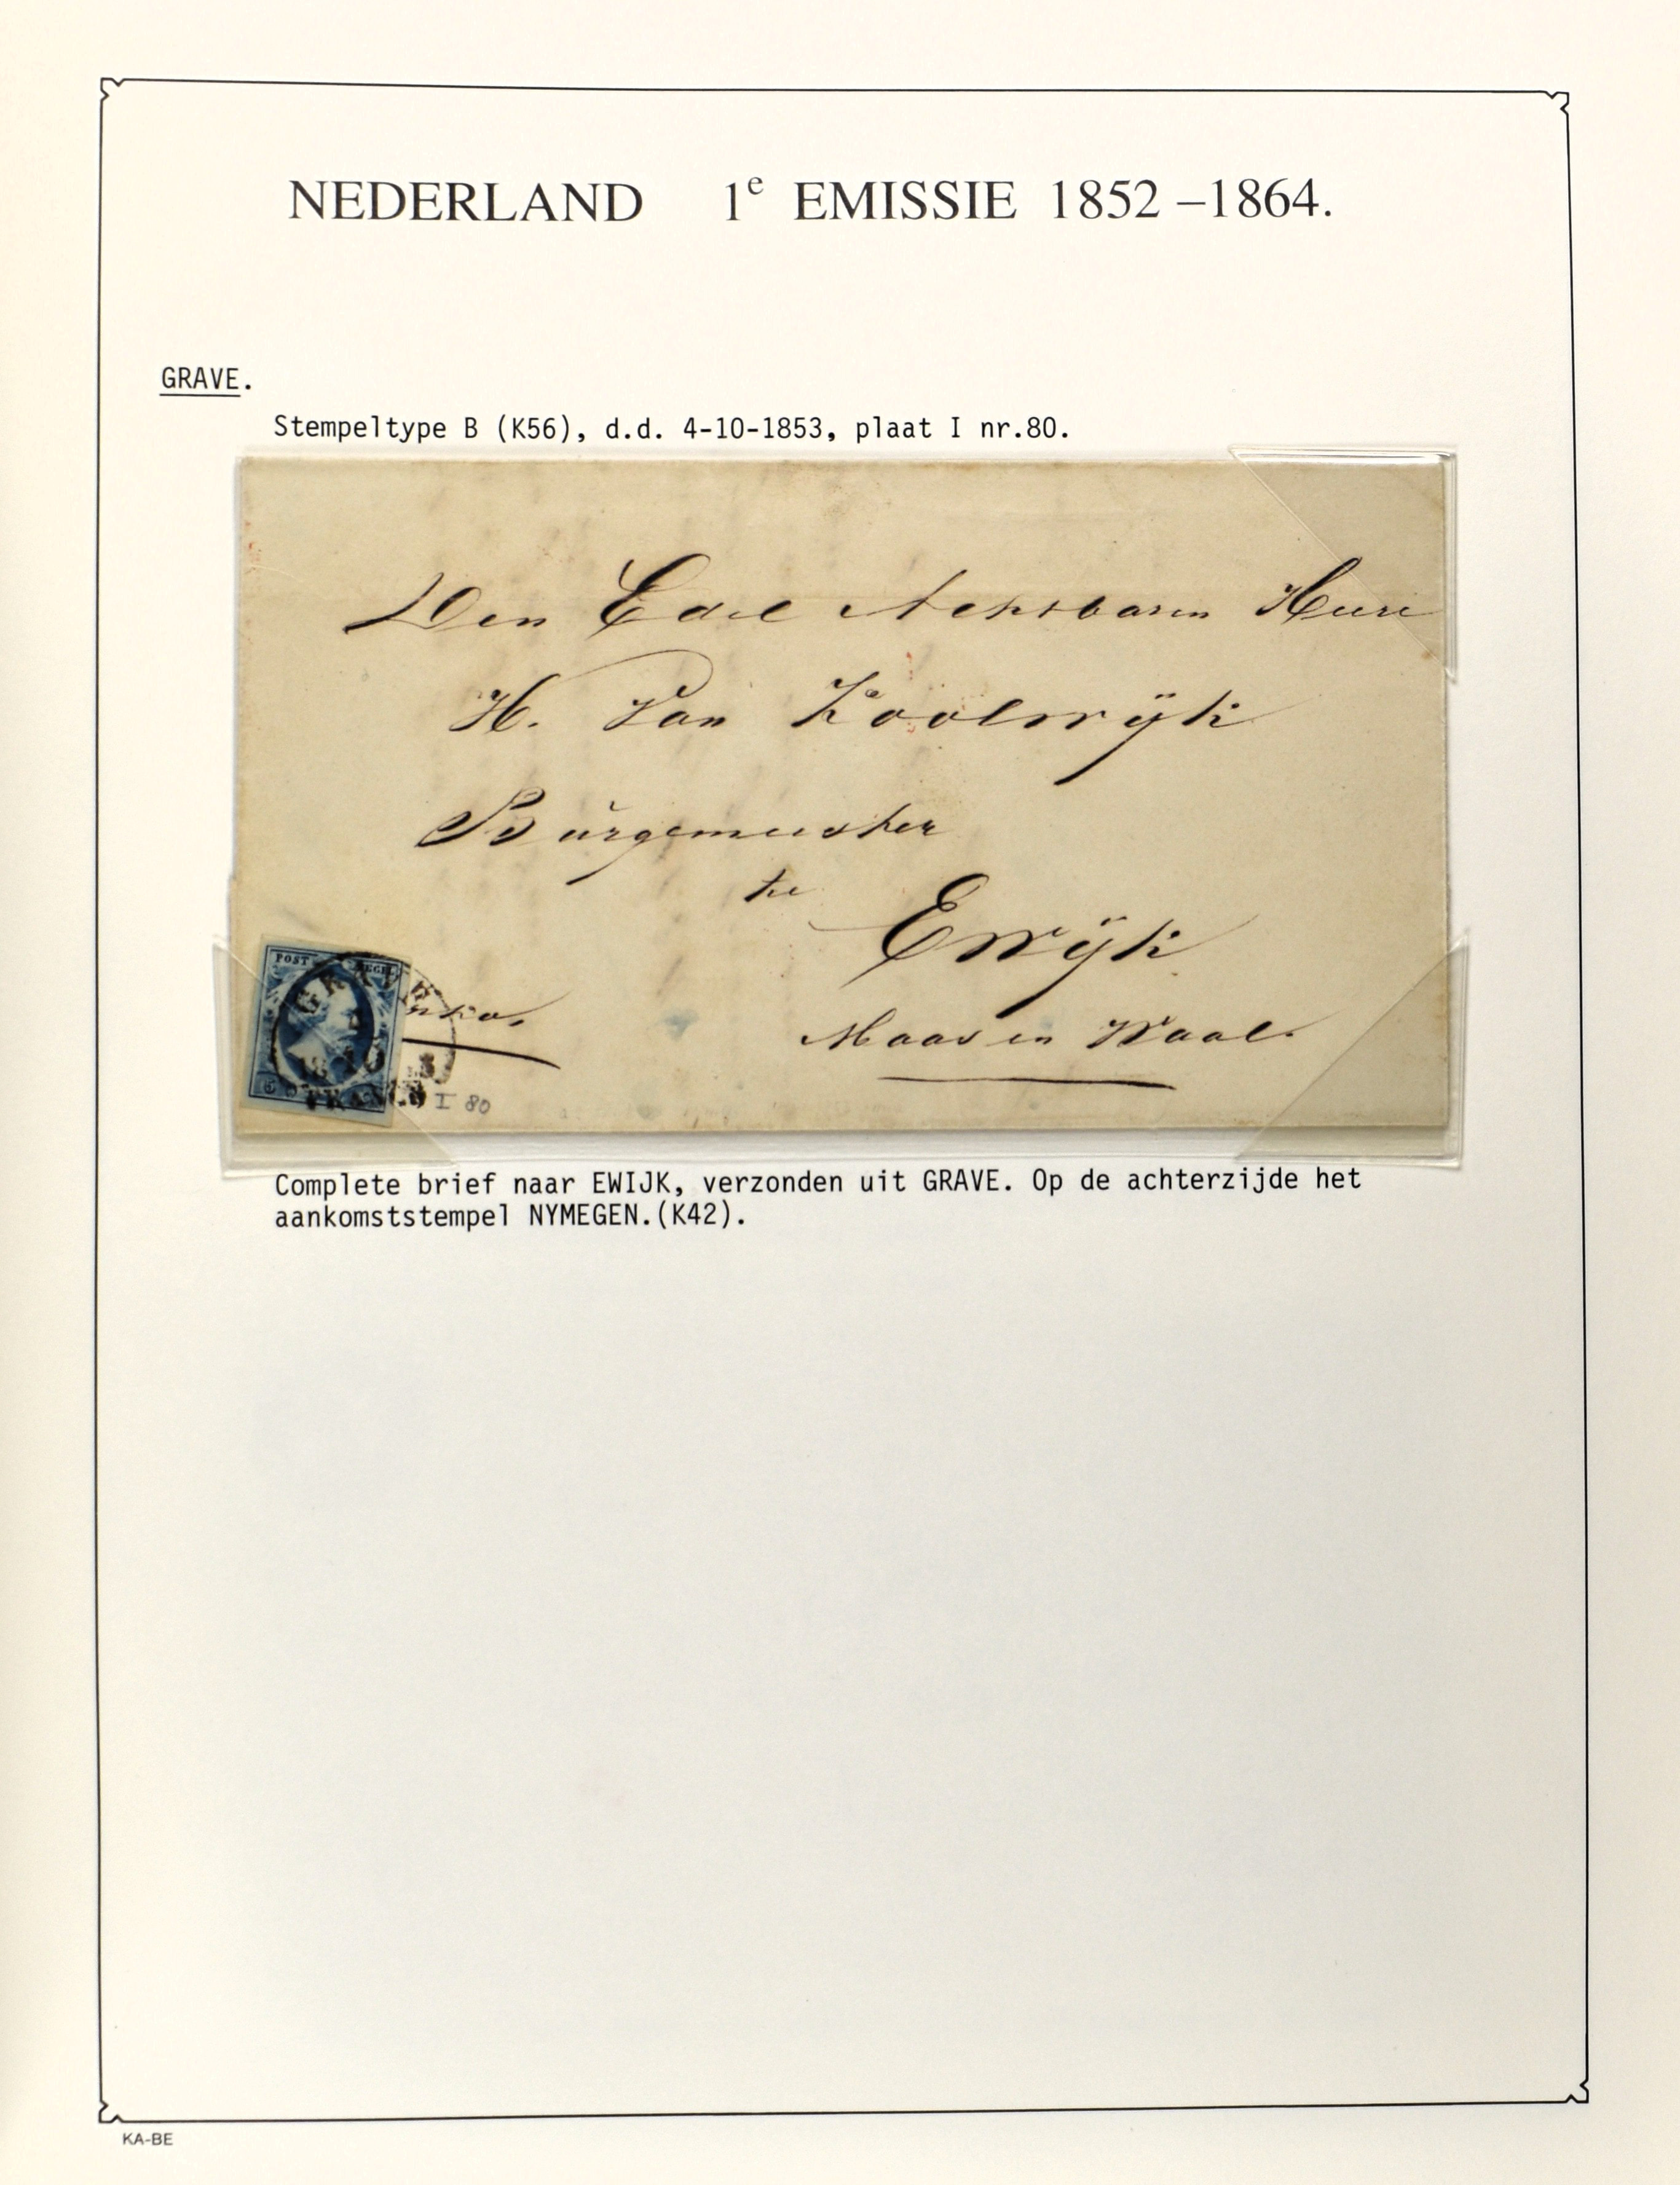 NEDERLAND 1e EMISSIE 1852 –1864.
GRAVE.
Stempeltype B (K56), d.d. 4-10-1853, plaat I nr.80.
Den Edel Achtbaren Heere
H. Van Koolwijk
Burgemeester
te
Ewijk
Maas en Waal.
POST
GRAVE
FRANCO
I 80
Complete brief naar EWIJK, verzonden uit GRAVE. Op de achterzijde het
aankomststempel NYMEGEN.(K42).
KA-BE